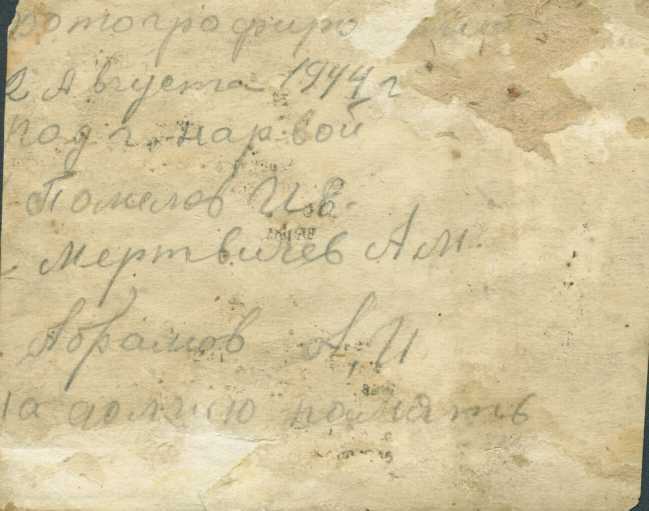 фотографиро
2 Августа 1944 г
под г. нарвой
Помелов И.
Мертвичев А М.
Абрамов А, И
на долгую память